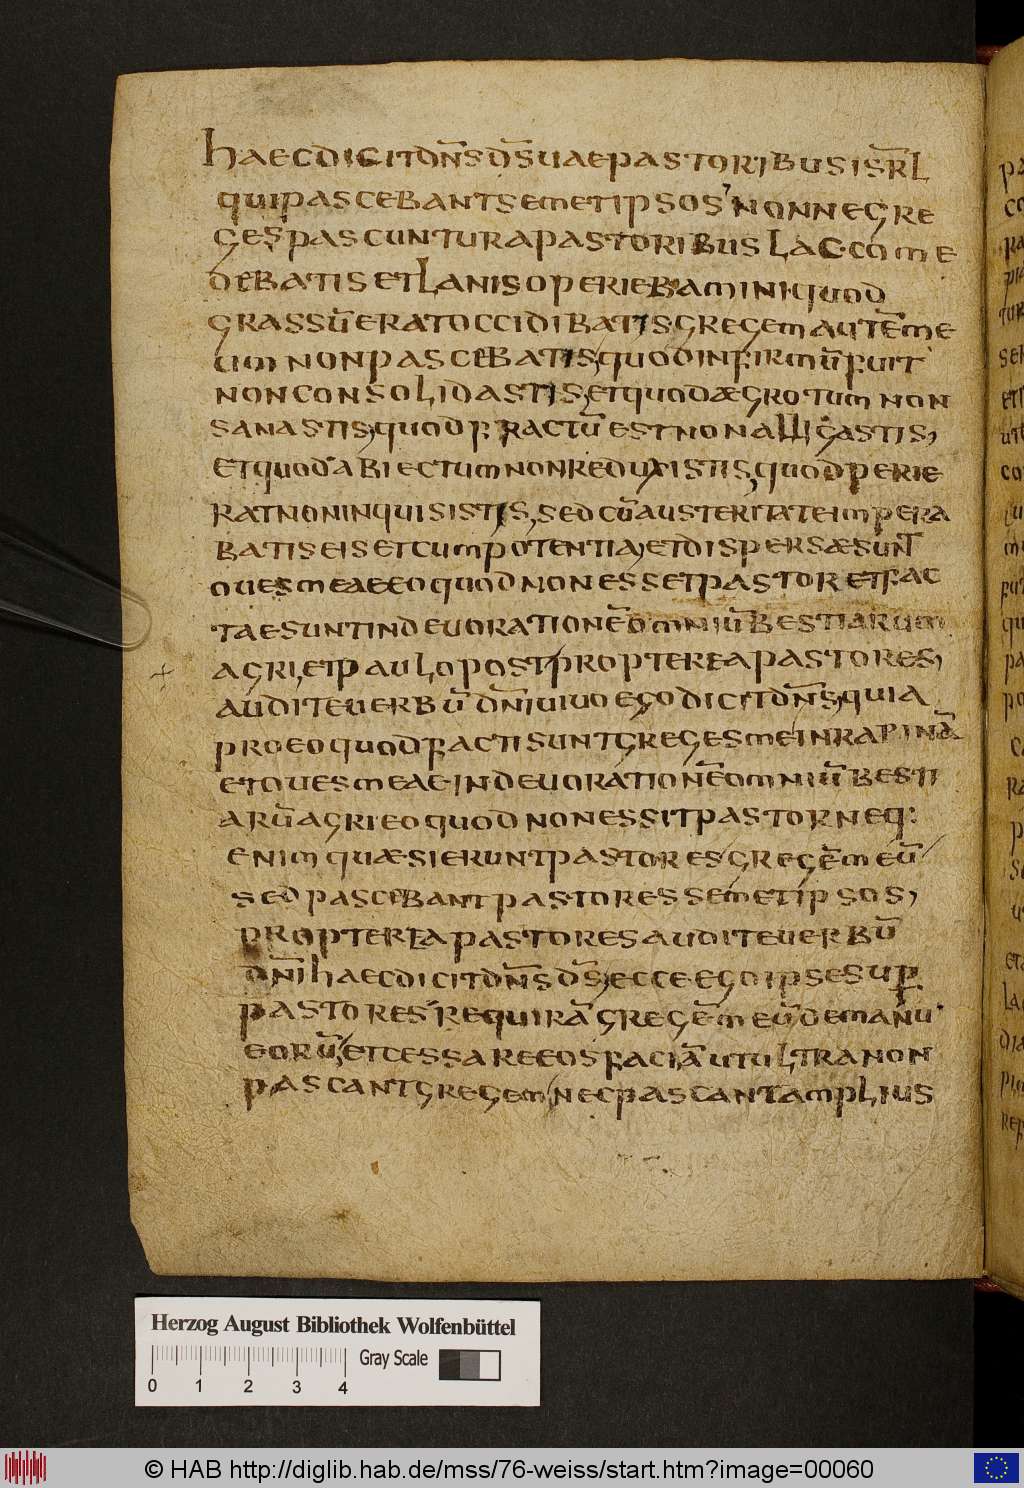 haecdicitdn̄sds̄uaepastoribusisr̄l
quipascebantsemetipsos nonnegre
gespascunturapastoribus laccome
debatis etlanisoperiebamini quod
grassūeratoccidibatis gregemautēme
um nonpascebatis quodinfirmūfuit
nonconsolidastis, etquodægrotum non
sanastis, quodfractūestnonalligastis,
etquodabiectumnonreduxistis, quodperie
ratnoninquisistis, sedcūausteritateimpera
batiseisetcumpotentia, etdispersæsunt
ouesmeaeeoquodnonessetpastoretfac
taesuntindeuorationēomniūbestiarum
agri, etpaulopost propterea pastores,
auditeuerbū dn̄i uiuoegodicitdn̄s, quia
proeoquodfactisuntgregesmeiinrapinā
etouesmeae indeuorationēomniūbesti
arūagrieoquodnonessitpastor neq:
enimquæsieruntpastores gregēmeū
sedpascebantpastoressemetipsos,
proptereapastoresauditeuerbū
dn̄i haecdicitdn̄sds̄, ecceegoipsesup
pastores requirāgregēmeūdemanu
eorū, etcessareeosfaciāutultranon
pascantgregem, necpascantamplius
pa
co
ra
Herzog August Bibliothek Wolfenbüttel
Gray Scale
0 1 2 3 4
© HAB http://diglib.hab.de/mss/76-weiss/start.htm?image=00060